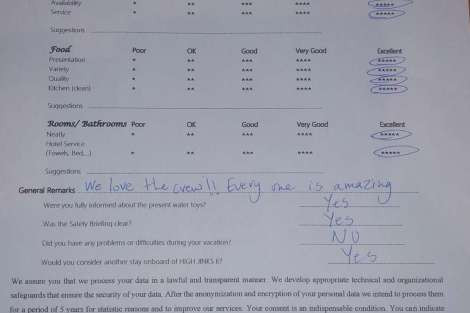 Availability * ** *** **** *****
Service * ** *** **** *****
Suggestions
Food Poor OK Good Very Good Excellent
Presentation * ** *** **** *****
Variety * ** *** **** *****
Quality * ** *** **** *****
Kitchen (clean) * ** *** **** *****
Suggestions
Rooms/ Bathrooms Poor OK Good Very Good Excellent
Neatly * ** *** **** *****
Hotel Service
(Towels, Bed,...) * ** *** **** *****
Suggestions
General Remarks We love the crew!! Every one is amazing
Were you fully informed about the present water toys? Yes
Was the Safety Briefing clear? Yes
Did you have any problems or difficulties during your vacation? NO
Would you consider another stay onboard of HIGH JINKS II? Yes
We assure you that we process your data in a lawful and transparent manner. We develop appropriate technical and organizational
safeguards that ensure the security of your data. After the anonymization and encryption of your personal data we intend to process them
for a period of 5 years for statistic reasons and to improve our services. Your consent is an indispensable condition. You can indicate